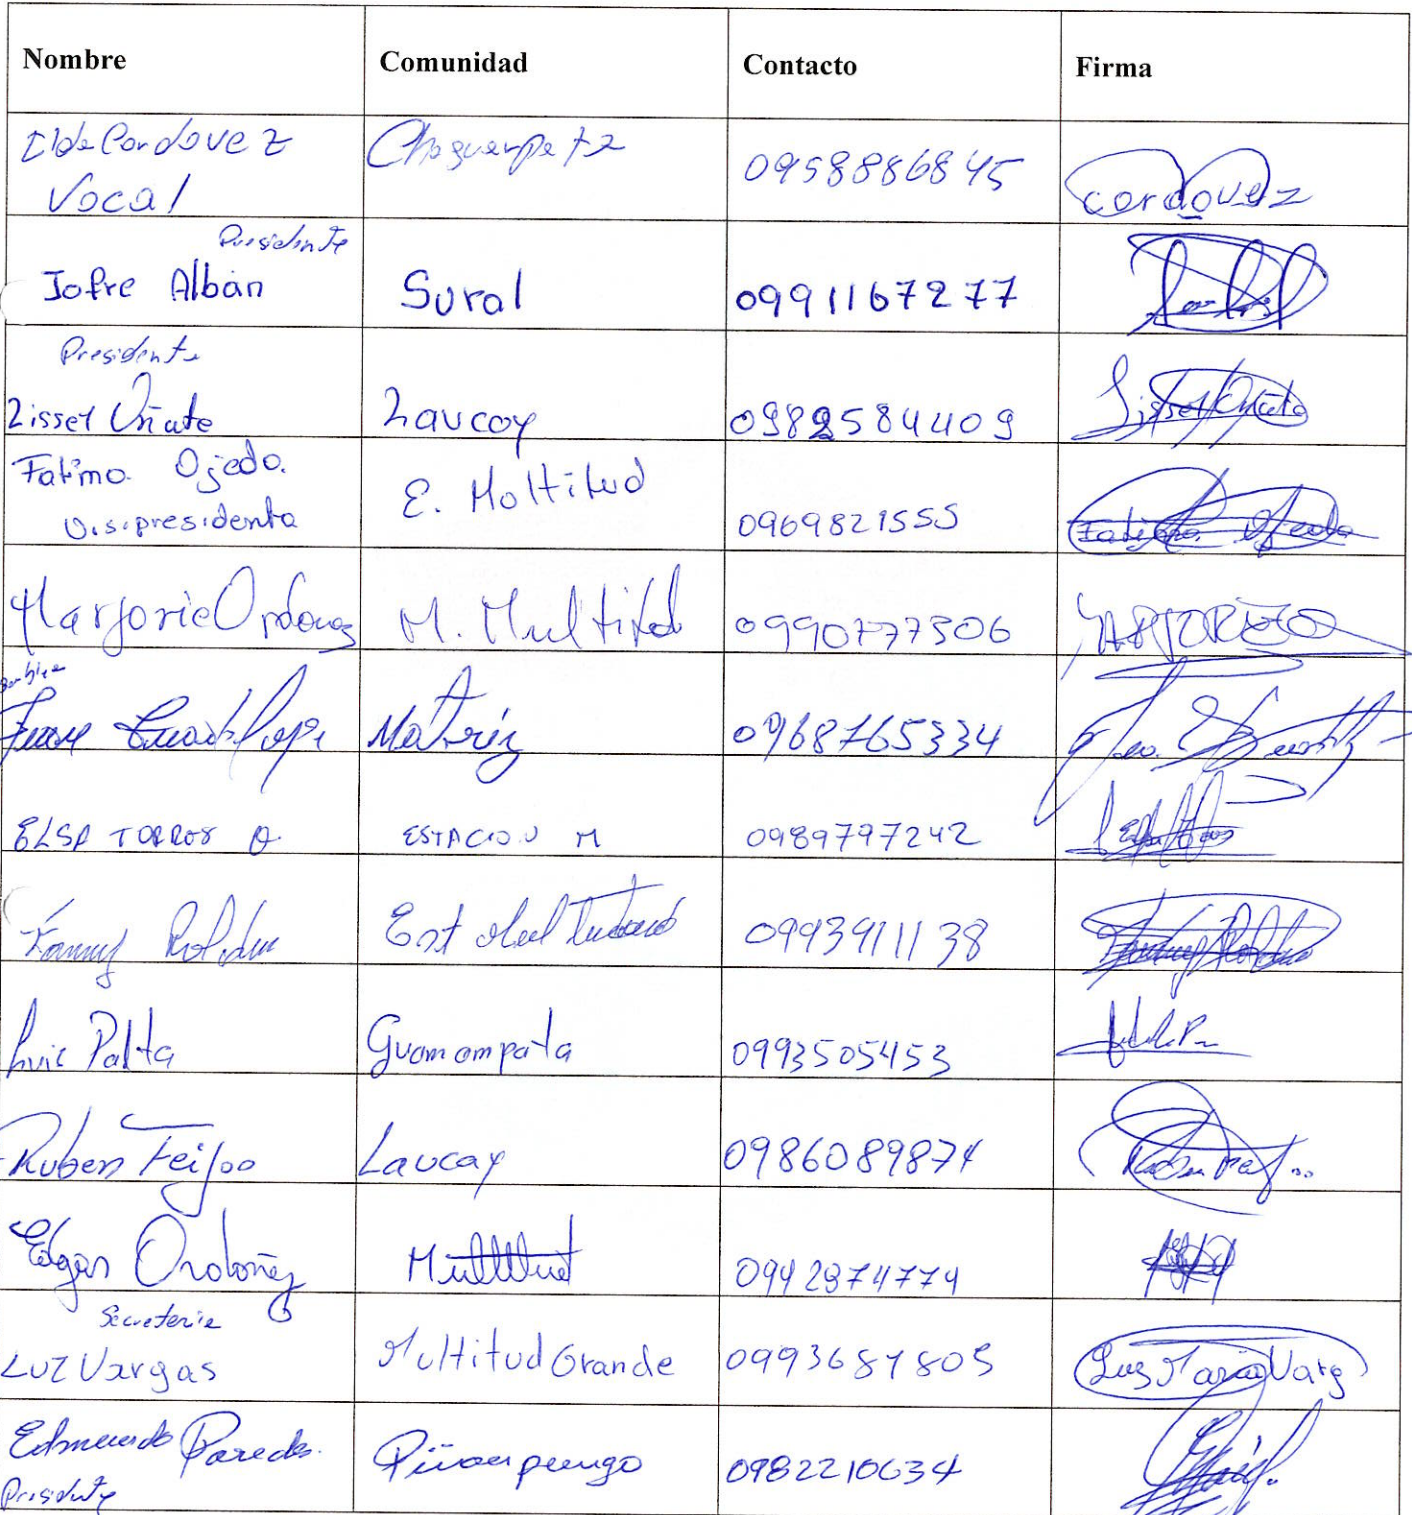 Nombre Comunidad Contacto Firma
Ilda Cordovez Chaguarpata 0958886845 cordovez
Vocal
Presidente
Jofre Albán Sural 0991167277
Presidenta
Lisset Oñate Laucay 0982584409 Lisset Oñate
Fatima Ojeda. E. Moltitud 0969821555 Fatima Ojeda
Visipresidenta
Marjorie Ordoñez M. Multitud 0990777306
Matriz 0968765334
ELSA TORRES O. ESTACION M 0989797242
Fanny Roldan Est Multitud 0993911138 Fanny Roldan
Luis Palta Guamampata 0993505453
Ruben Feijoo Laucay 0986089874 Ruben Feijoo
Edgar Ordoñez Multitud 0942974774
Secretaria
LUZ Vargas Multitud Grande 0993687805 Luz Maria Varg
Edmundo Paredes. Piñanpungo 0982210634
Presidente